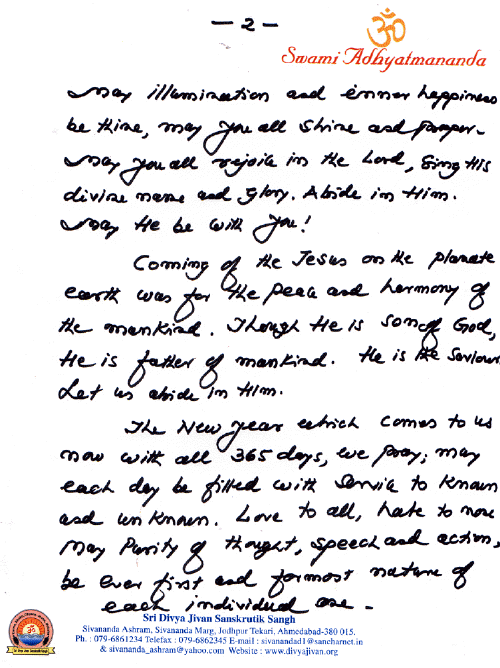 - 2 -
ॐ
Swami Adhyatmananda
May illumination and inner happiness
be thine, may you all shine and prosper.
May you all rejoice in the Lord, Sing His
divine name and glory. Abide in Him.
May He be with you!
Coming of the Jesus on the planate
earth was for the peace and harmony of
the mankind. Though He is son of God,
He is father of mankind. He is the Saviour.
Let us abide in Him.
The New Year which comes to us
now with all 365 days, we pray; may
each day be filled with Service to Known
and unknown. Love to all, hate to none
May Purity of thought, speech and action,
be ever first and formost nature of
each individual one.
Sri Divya Jivan Sanskrutik Sangh
Sivananda Ashram, Sivananda Marg, Jodhpur Tekari, Ahmedabad-380 015.
Ph. : 079-6861234 Telefax : 079-6862345 E-mail : sivanandad1@sancharnet.in
& sivananda_ashram@yahoo.com Website : www.divyajivan.org